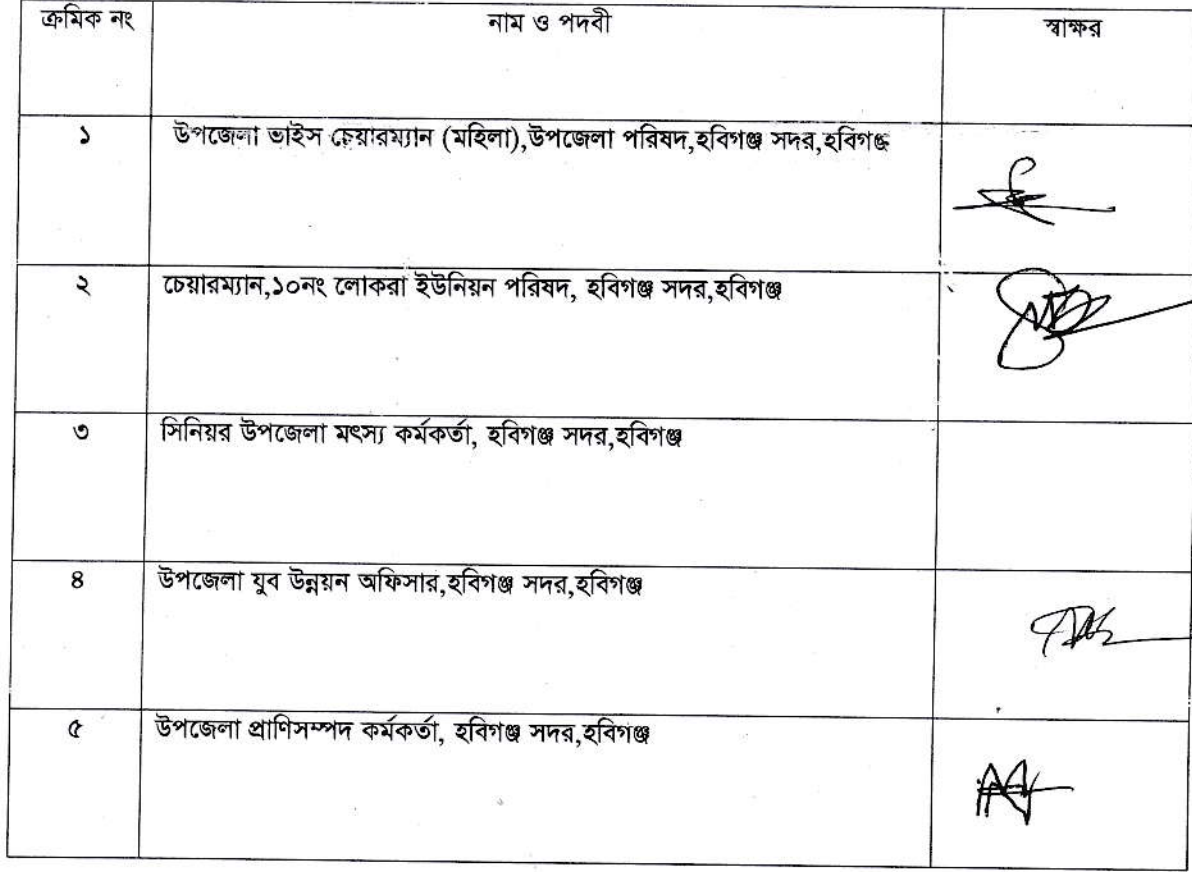 ক্রমিক নং নাম ও পদবী স্বাক্ষর
১ উপজেলা ভাইস চেয়ারম্যান (মহিলা),উপজেলা পরিষদ,হবিগঞ্জ সদর,হবিগঞ্জ
২ চেয়ারম্যান,১০নং লোকরা ইউনিয়ন পরিষদ, হবিগঞ্জ সদর,হবিগঞ্জ
৩ সিনিয়র উপজেলা মৎস্য কর্মকর্তা, হবিগঞ্জ সদর,হবিগঞ্জ
৪ উপজেলা যুব উন্নয়ন অফিসার,হবিগঞ্জ সদর,হবিগঞ্জ
৫ উপজেলা প্রাণিসম্পদ কর্মকর্তা, হবিগঞ্জ সদর,হবিগঞ্জ